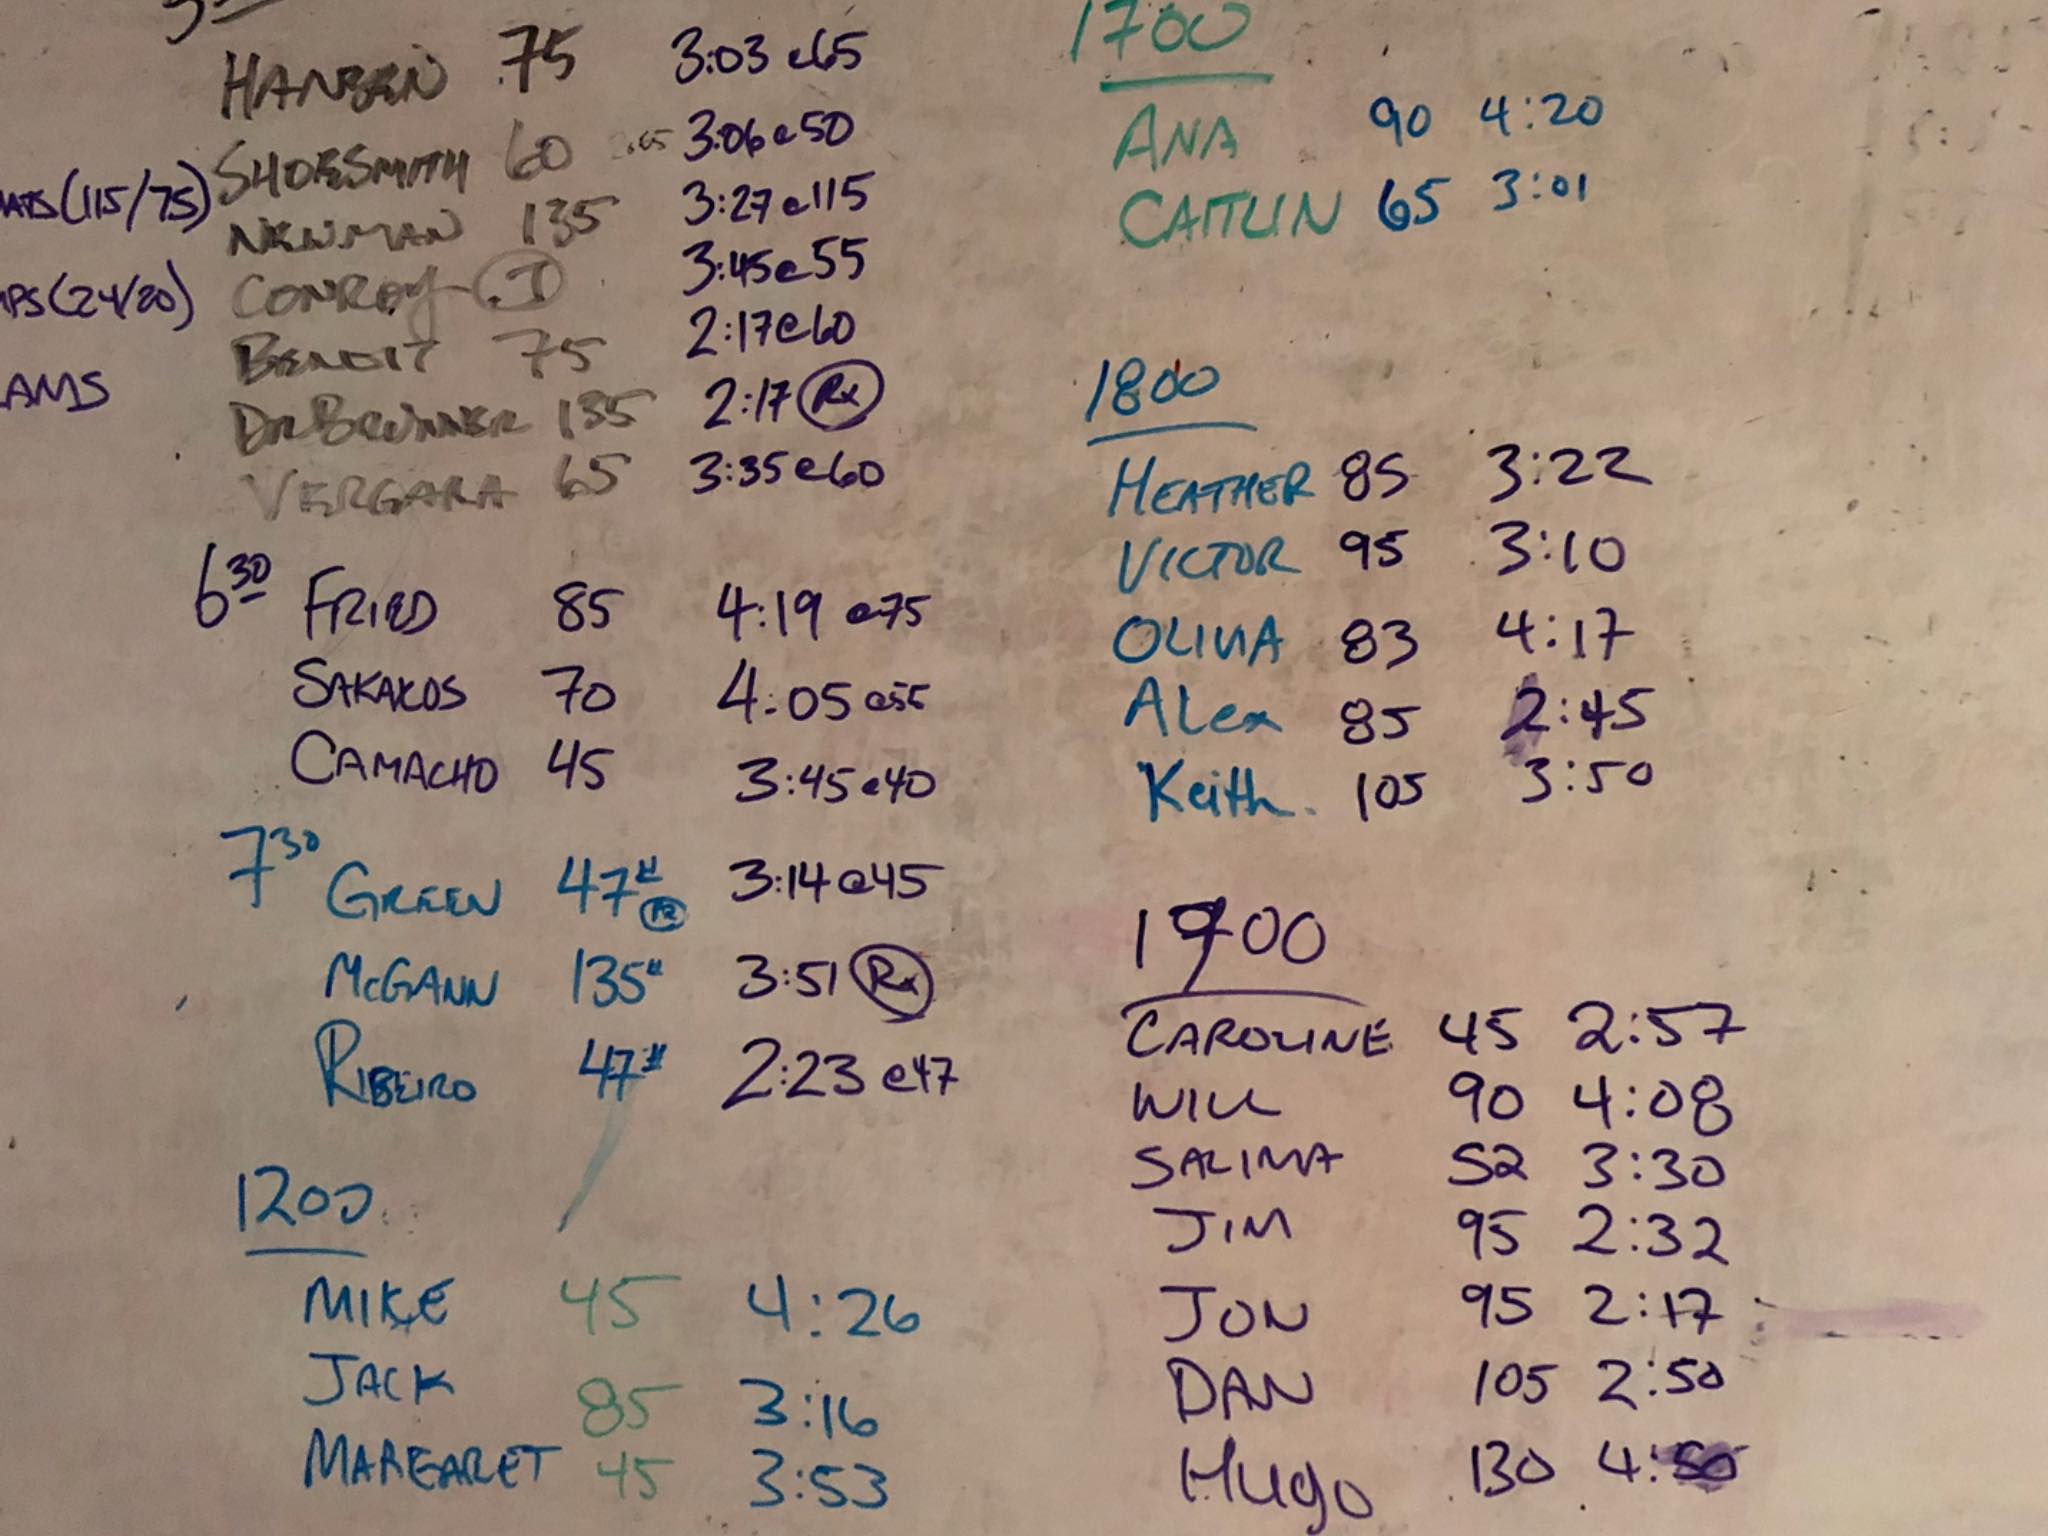 HANSEN 75 3:03 @65
SHOESMITH 60 3:06@50
(115/75) NEWMAN 135 3:27@115
(24/20) CONROY I 3:45@55
BENOIT 75 2:17@60
AMS DRBRUNNER 135 2:17 Rx
VERGARA 65 3:35@60
6 30 FRIED 85 4:19 @75
SAKAKOS 70 4:05 @55
CAMACHO 45 3:45@40
7 30
GREEN 47# PR 3:14@45
McGANN 135# 3:51 Rx
RIBEIRO 47# 2:23 @47
1200
MIKE 45 4:26
JACK 85 3:16
MARGARET 45 3:53
1700
ANA 90 4:20
CAITLIN 65 3:01
1800
HEATHER 85 3:22
VICTOR 95 3:10
OLIVIA 83 4:17
ALex 85 2:45
Keith 105 3:50
1900
CAROLINE 45 2:57
WILL 90 4:08
SALIMA 52 3:30
JIM 95 2:32
JON 95 2:17
DAN 105 2:50
Hugo 130 4:50